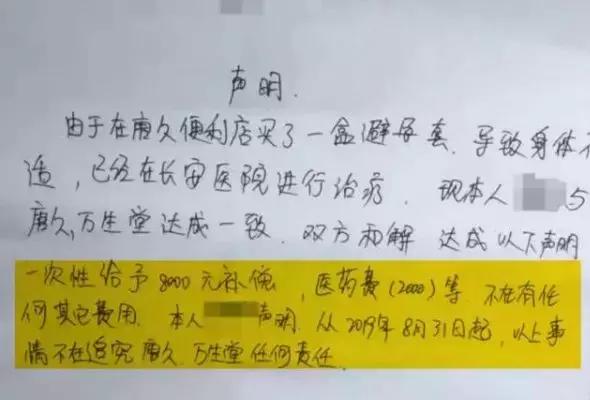 声明.
由于在唐久便利店买了一盒避孕套、导致身体不
适，已经在长安医院进行治疗. 现本人 5
唐久,万生堂达成一致. 双方和解 达成以下声明
一次性给予8000元补偿，医药费(2000)等. 不在有任
何其它费用. 本人 声明. 从2019年8月31日起，以上事
情不在追究唐久.万生堂任何责任.